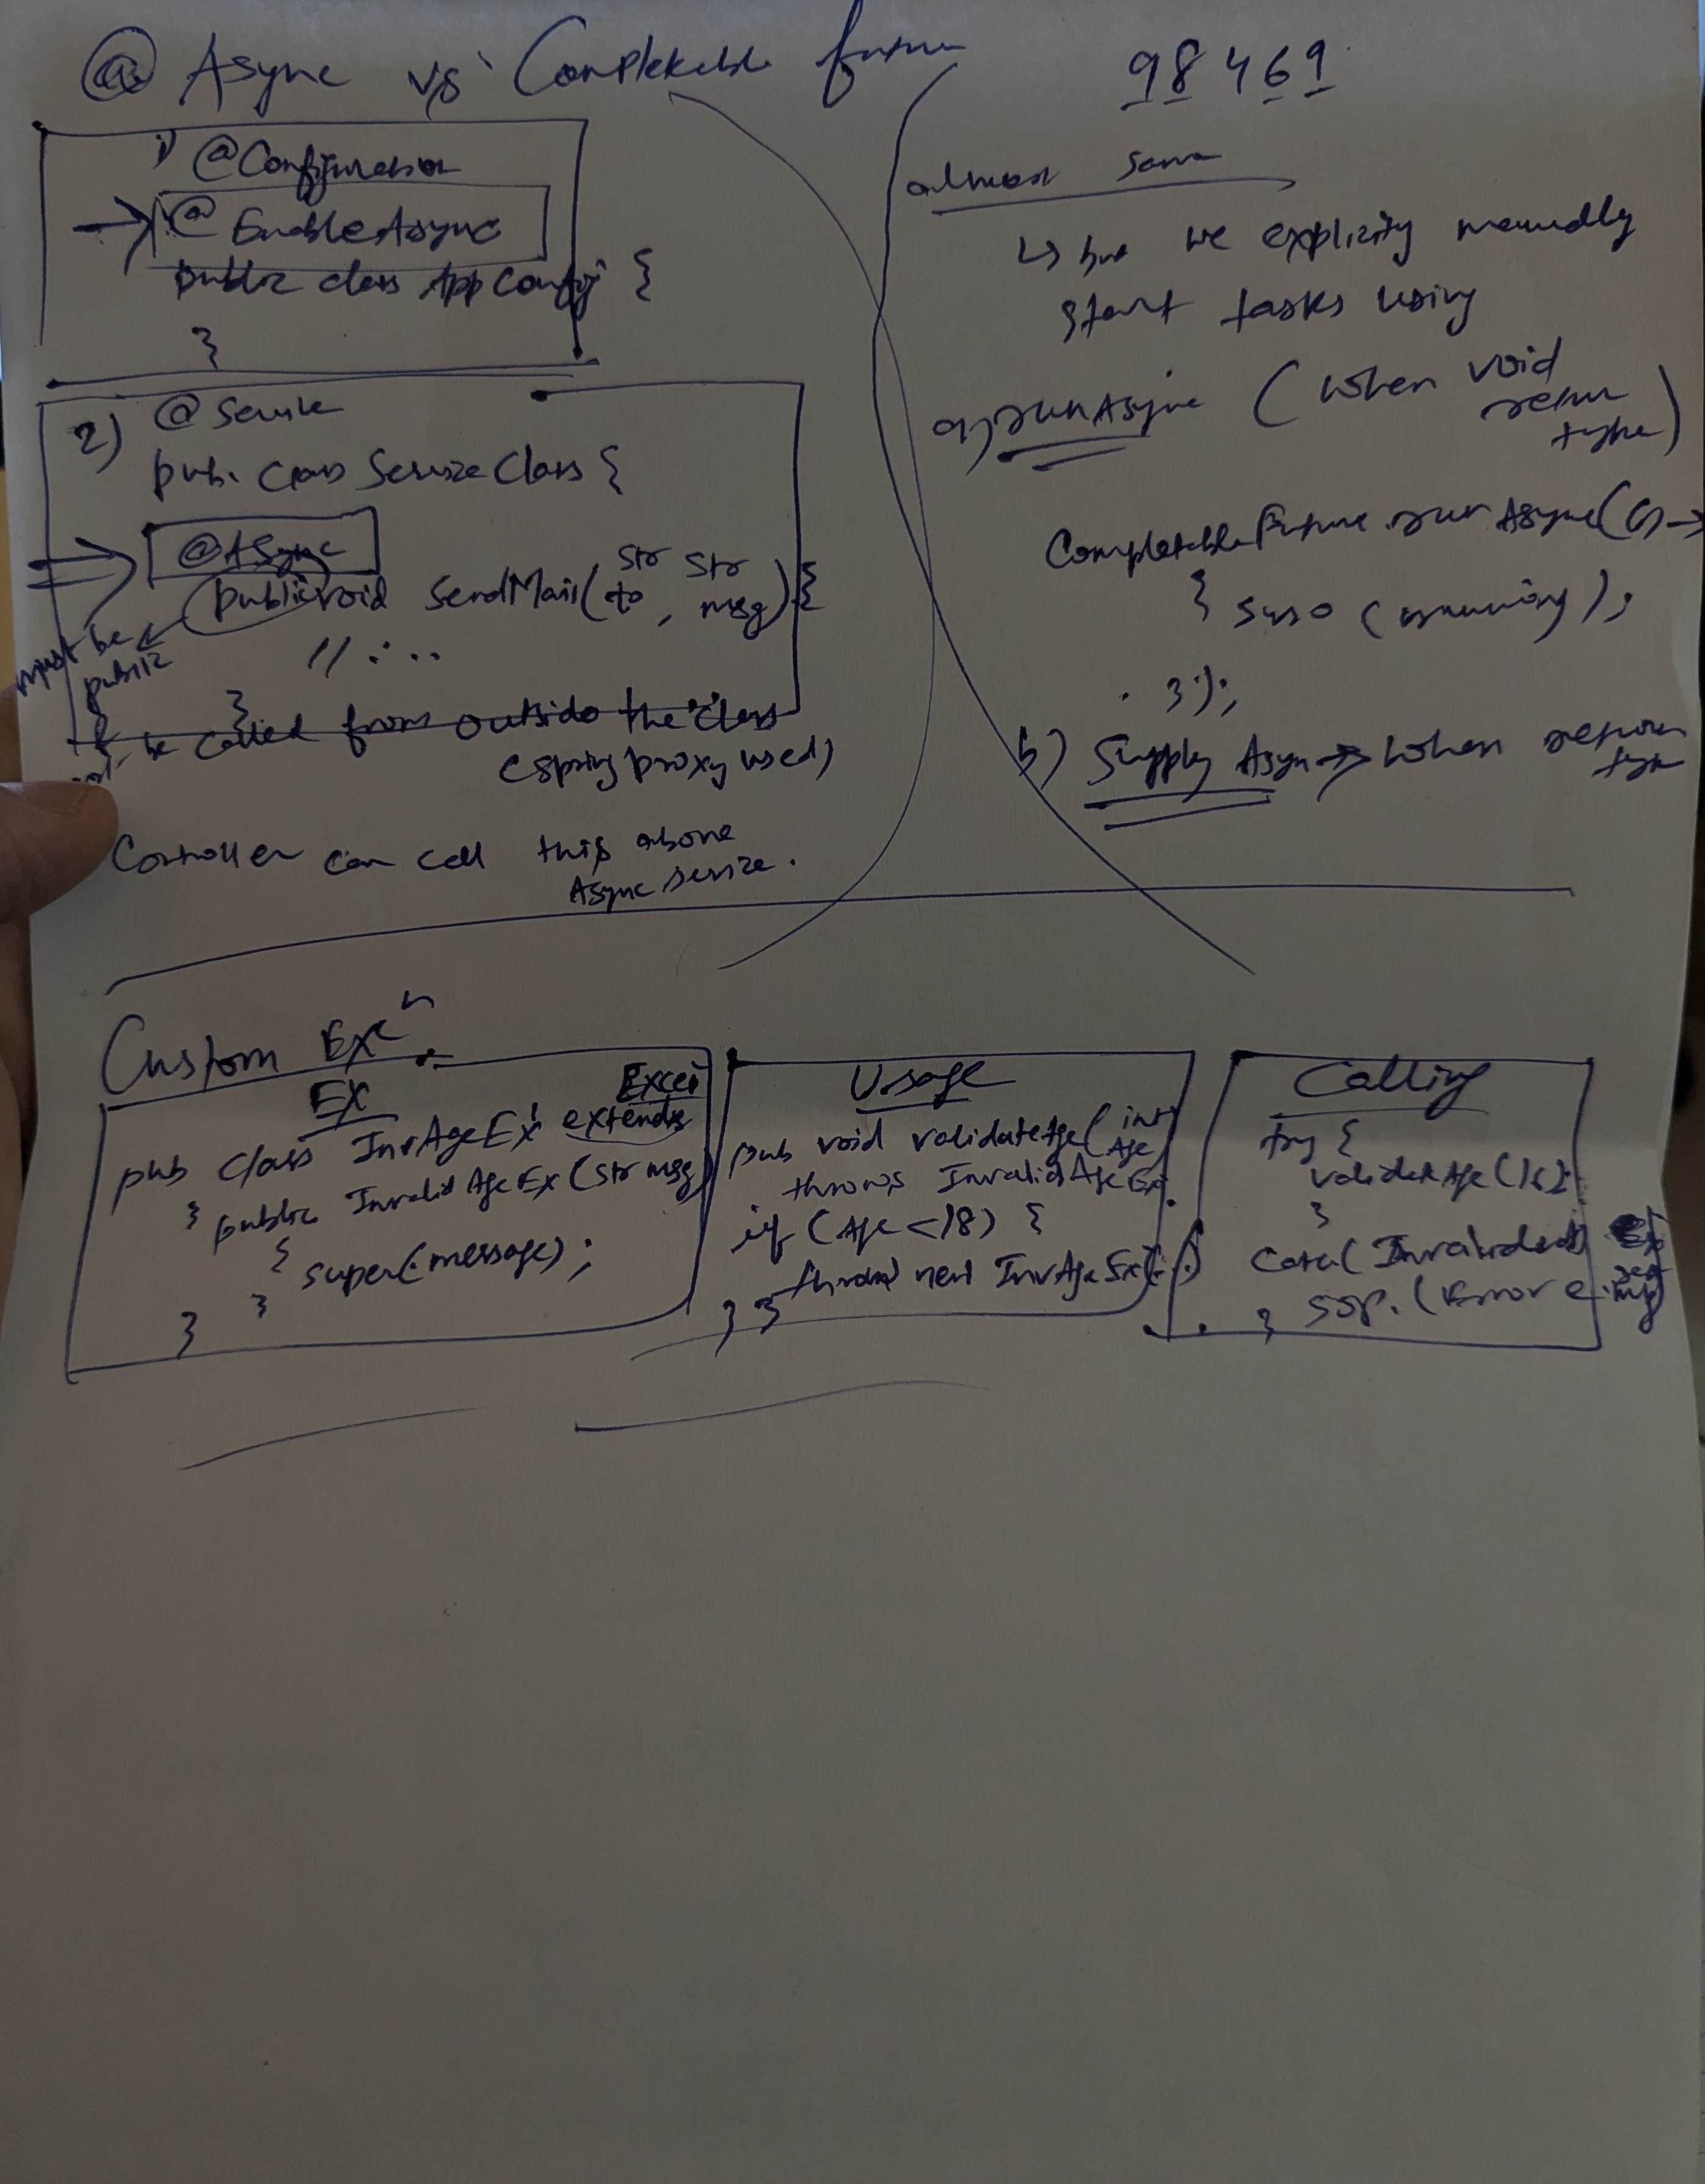 @ Async vs Completable future
1) @Configuration
@ EnableAsync
public class AppConfig {
}
2) @Service
pub. class ServiceClass {
@Async
public void SendMail( Str to, Str msg) {
// ....
}
must be public
be called from outside the class
(spring proxy used)
Controller can call this above
Async service.
98469
almost same
↳ but we explicitly manually
start tasks using
a) runAsync ( when void
return
type)
CompletableFuture.runAsync(() →
{ syso ( running);
});
b) Supply Async → when return
type
Custom Exⁿ
Ex
pub class InvAgeEx extends Excei
{ public InvalidAgeEx (Str msg)
{ super(message);
}
}
Usage
pub void validateAge( int Age
throws InvalidAgeEx
if (Age < 18) {
throw new InvAgeEx(..)
} }
Calling
try {
validateAge (16);
}
sop. (Error e.
}